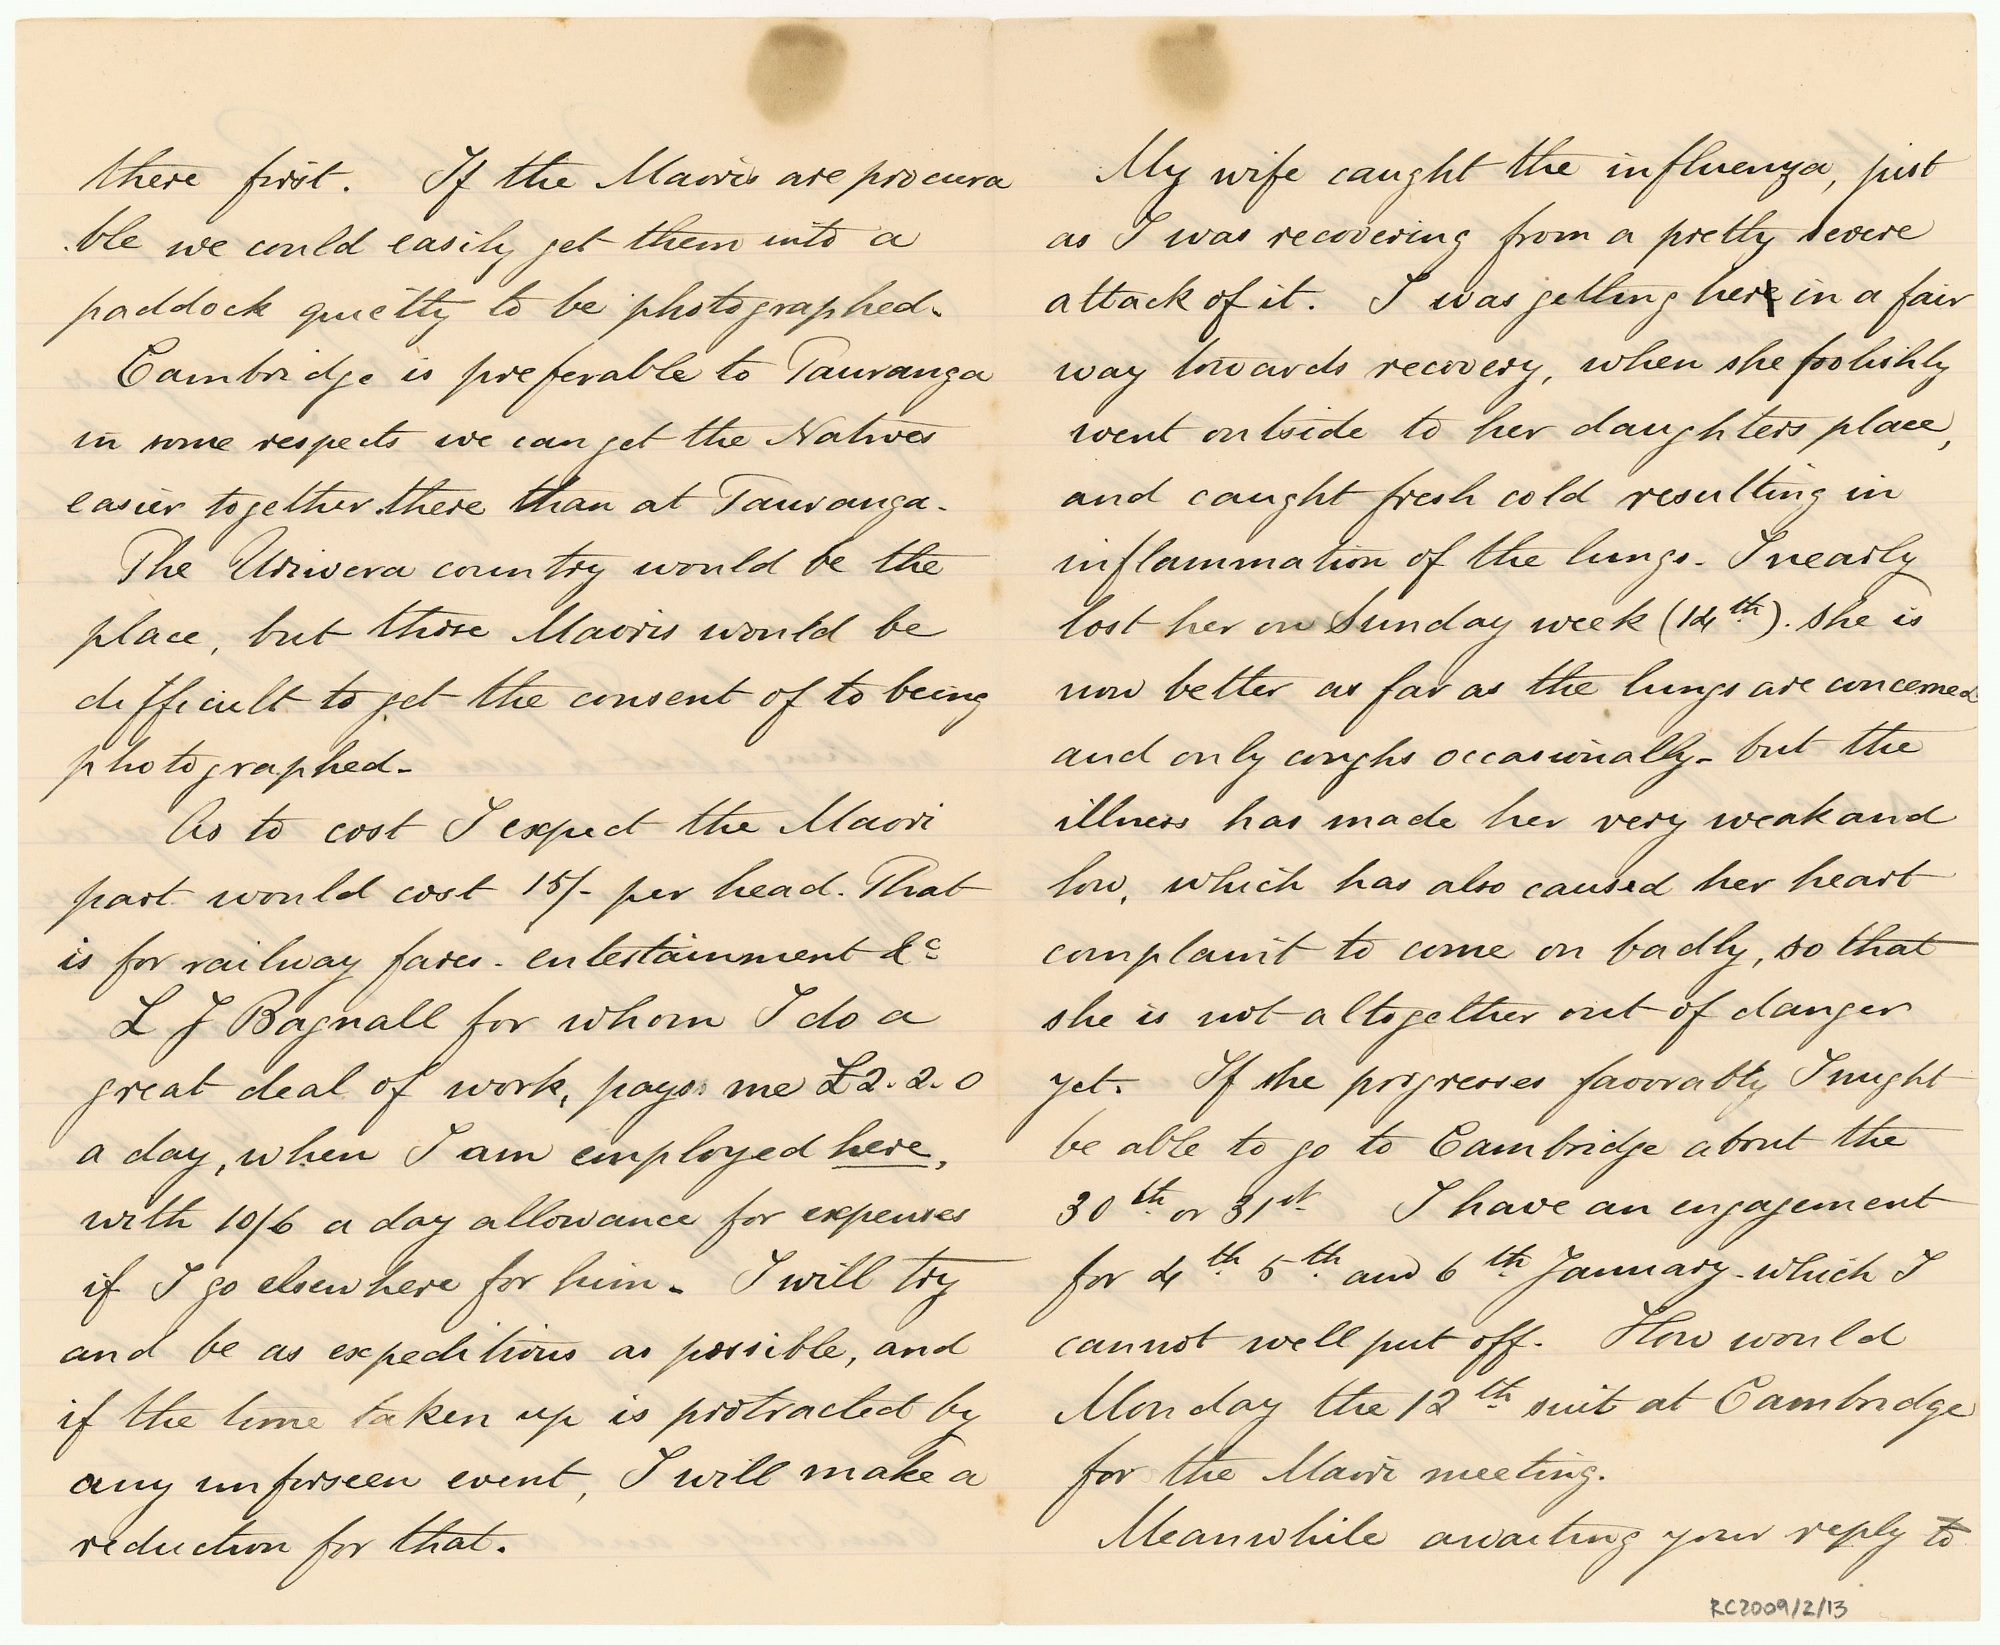 there first. If the Maoris are procura
ble we could easily get them into a
paddock quietly to be photographed.
Cambridge is preferable to Tauranga
in some respects we can get the Natives
easier together there than at Tauranga.
The Uriwera country would be the
place, but those Maoris would be
difficult to get the consent of to being
photographed.
As to cost I expect the Maori
part would cost 15/- per head. That
is for railway fares. entertainment &c
L J Bagnall for whom I do a
great deal of work, pays me £2.2.0
a day, when I am employed here,
with 10/6 a day allowance for expenses
if I go elsewhere for him. I will try
and be as expeditious as possible, and
if the time taken up is protracted by
any unforseen event, I will make a
reduction for that.
My wife caught the influenza, just
as I was recovering from a pretty severe
attack of it. I was getting her in a fair
way towards recovery, when she foolishly
went outside to her daughters place,
and caught fresh cold resulting in
inflammation of the lungs. I nearly
lost her on Sunday week (14th). She is
now better as far as the lungs are concerned
and only coughs occasionally. but the
illness has made her very weak and
low, which has also caused her heart
complaint to come on badly, so that
she is not altogether out of danger
yet. If she progresses favorably I might
be able to go to Cambridge about the
30th or 31st I have an engagement
for 4th 5th and 6th January. which I
cannot well put off. How would
Monday the 12th suit at Cambridge
for the Maori meeting.
Meanwhile awaiting your reply to
RC2009/2/13